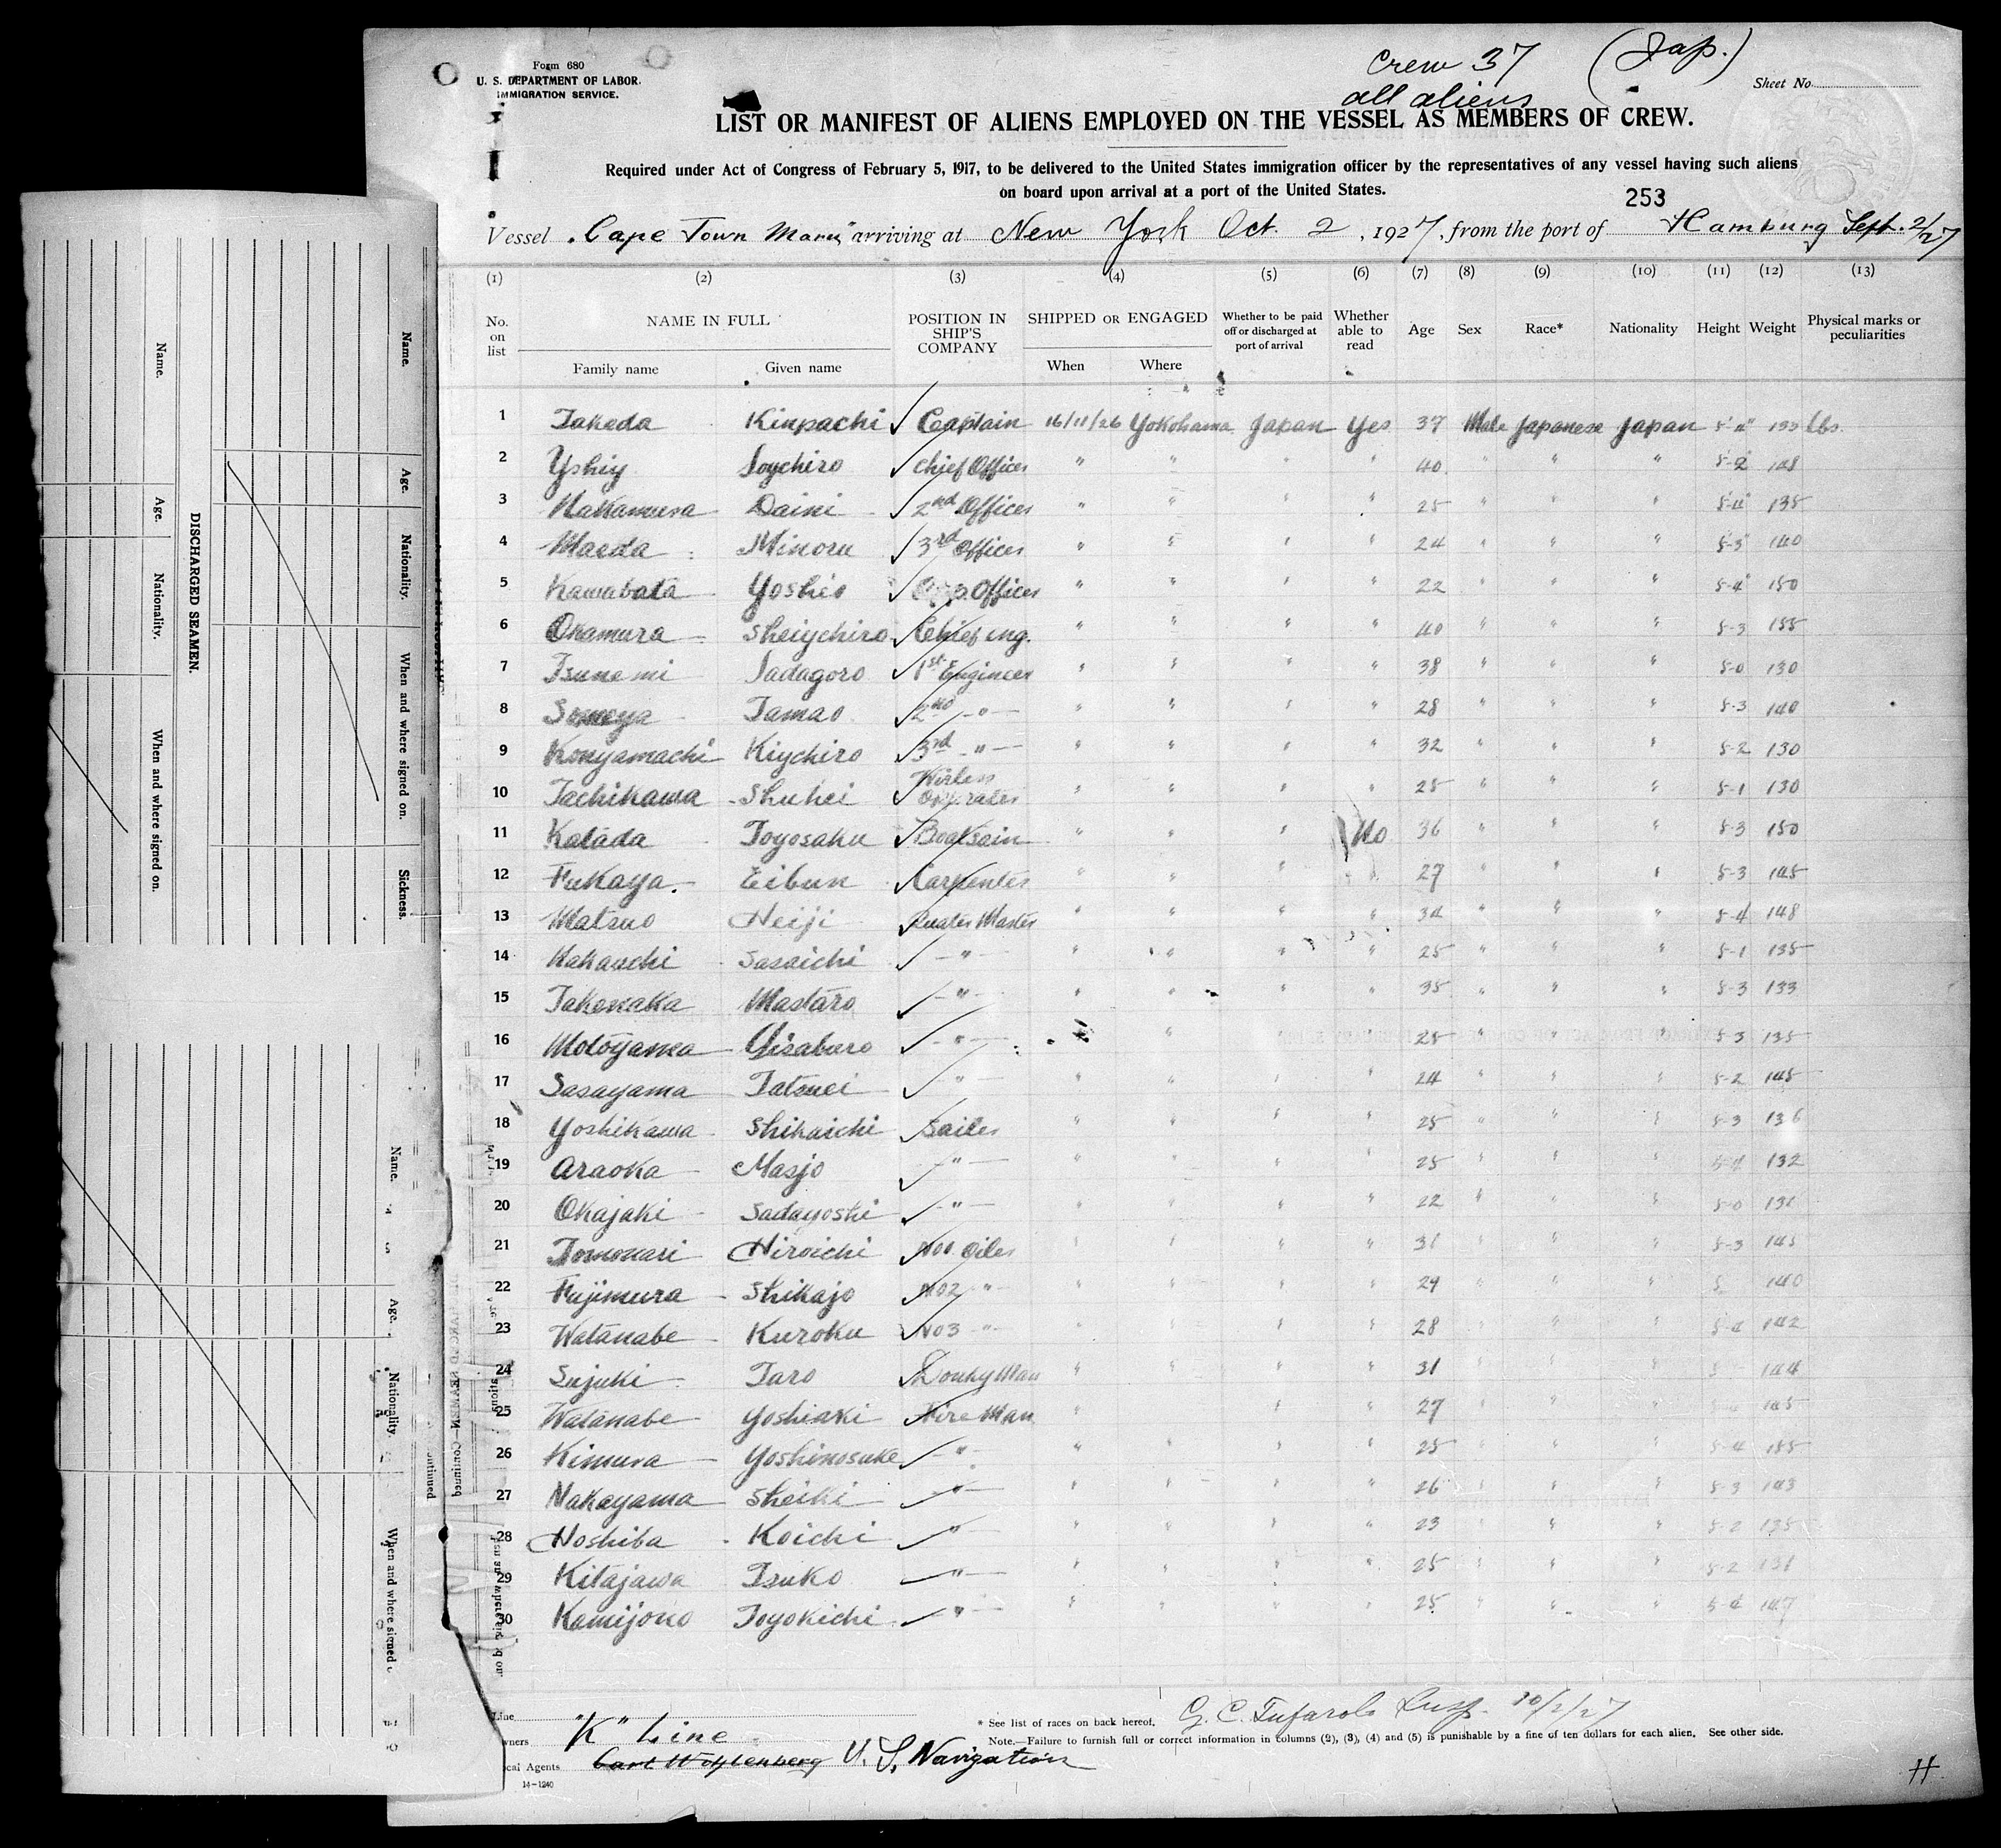 Form 680
U. S. DEPARTMENT OF LABOR.
IMMIGRATION SERVICE.
Crew 37 (Jap.)
all aliens
Sheet No.
LIST OR MANIFEST OF ALIENS EMPLOYED ON THE VESSEL AS MEMBERS OF CREW.
Required under Act of Congress of February 5, 1917, to be delivered to the United States immigration officer by the representatives of any vessel having such aliens
on board upon arrival at a port of the United States.
253
Vessel "Cape Town Maru" arriving at New York Oct. 2, 1927, from the port of Hamburg Sept. 2/27
(1) (2) (3) (4) (5) (6) (7) (8) (9) (10) (11) (12) (13)
No. on list NAME IN FULL Family name Given name POSITION IN SHIP'S COMPANY SHIPPED OR ENGAGED When Where Whether to be paid off or discharged at port of arrival Whether able to read Age Sex Race* Nationality Height Weight Physical marks or peculiarities
1 Takeda Kinpachi Captain 16/11/26 Yokohama Japan Yes 37 Male Japanese Japan lbs.
2 Yshiy Soychiro Chief Officer " " " " 40 " " " 5-2
3 Nakamura Daini 2nd Officer " " " " 25 " " " 135
4 Maeda Minoru 3rd Officer " " " " 24 " " " 5-3 140
5 Kawabata Yoshio Officer " " " " 22 " " " 5-4 150
6 Okamura Sheiychiro Chief eng. " " " " 40 " " " 5-3 155
7 Tsunemi Sadagoro 1st Engineer " " " " 38 " " " 5-0 130
8 Someya Tamao 2nd " " " " " 28 " " " 5-3 140
9 Konyamachi Kiychiro 3rd " " " " " 32 " " " 5-2 130
10 Tachikawa Shuhei Wirless Operater " " " " 25 " " " 5-1 130
11 Katada Toyosaku Boatsain " " " No 36 " " " 5-3 150
12 Fukaya Eibun Carpenter " " " " 27 " " " 5-3 145
13 Matsuo Heiji Quater Master " " " " 34 " " " 5-4 148
14 Nakauchi Sasaichi " " " " " 25 " " " 5-1 135
15 Takenaka Mastaro " " " " " 35 " " " 5-3 133
16 Motoyama Gisaburo " " " " 25 " " " 5-3 135
17 Sasayama Tatsuei " " " " " 24 " " " 5-2 145
18 Yoshikawa Shikaichi Sailer " " " " 25 " " " 5-3 136
19 Araoka Masjo " " " " " 25 " " " 132
20 Okajaki Sadayoshi " " " " " 22 " " " 5-0
21 Tomonari Hiroichi No1 Oiler " " " " 31 " " " 5-3
22 Fujimura Shikajo No2 " " " " " 29 " " " 140
23 Watanabe Kuroku No3 " " " " " 28 " " " 5-4 142
24 Sujuki Taro Donky Man " " " " 31 " " " 144
25 Watanabe Yoshiaki Fire Man " " " 27 " " "
26 Kimura Yoshinosuke " " " " " 25 " " " 5-4
27 Nakayama Sheiki " " " " " 26 " " " 5-3 143
28 Hoshiba Koichi " " " " " 23 " " " 5-2 135
29 Kitajawa Tsuko " " " " " 25 " " " 5-2
30 Kamijono Toyokichi " " " " " 25 " " " 5-4 147
Line
Owners "K" Line
Local Agents U. S. Navigation
14-1240
* See list of races on back hereof.
G. C. Tufarolo Insp. 10/2/27
Note.—Failure to furnish full or correct information in columns (2), (3), (4) and (5) is punishable by a fine of ten dollars for each alien. See other side.
H
DISCHARGED SEAMEN.
Name. Age. Nationality. When and where signed on.
Name. Age. Nationality. When and where signed on. Sickness.
Name. Age. Nationality. When and where signed